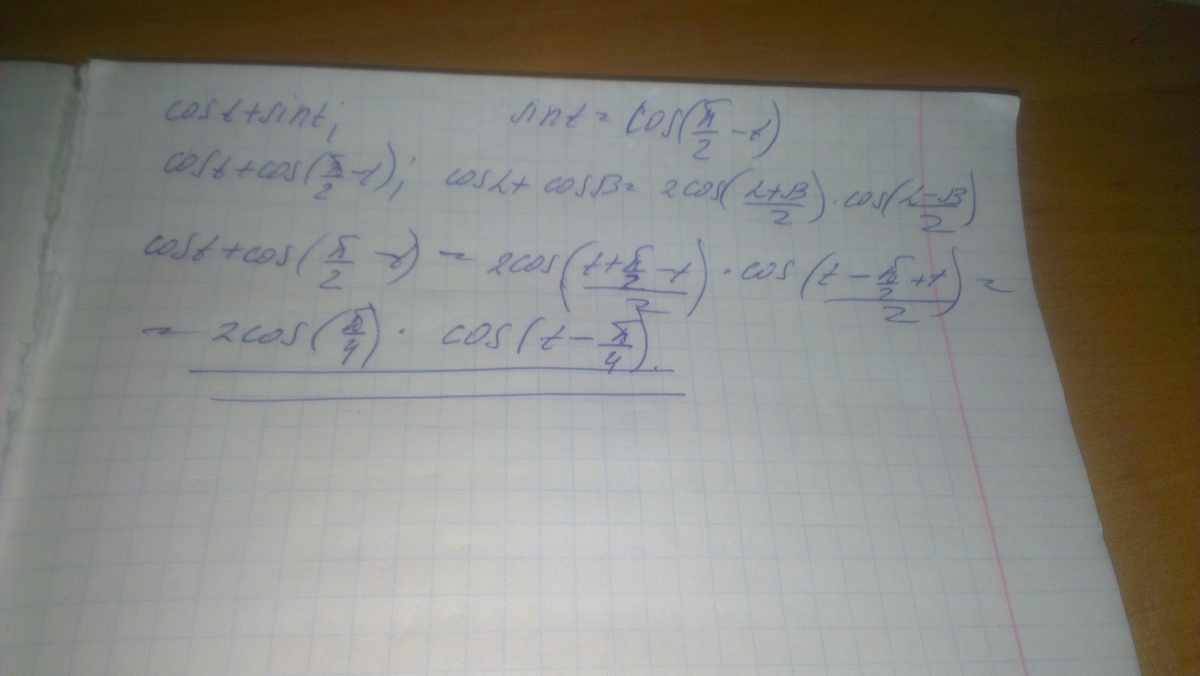 cost+sint; sint = cos(π/2 - t)
cost + cos(π/2 - t); cosα + cosβ = 2cos((α+β)/2) · cos((α-β)/2)
cost + cos(π/2 - t) = 2cos((t + π/2 - t)/2) · cos((t - π/2 + t)/2) =
= 2cos(π/4) · cos(t - π/4).